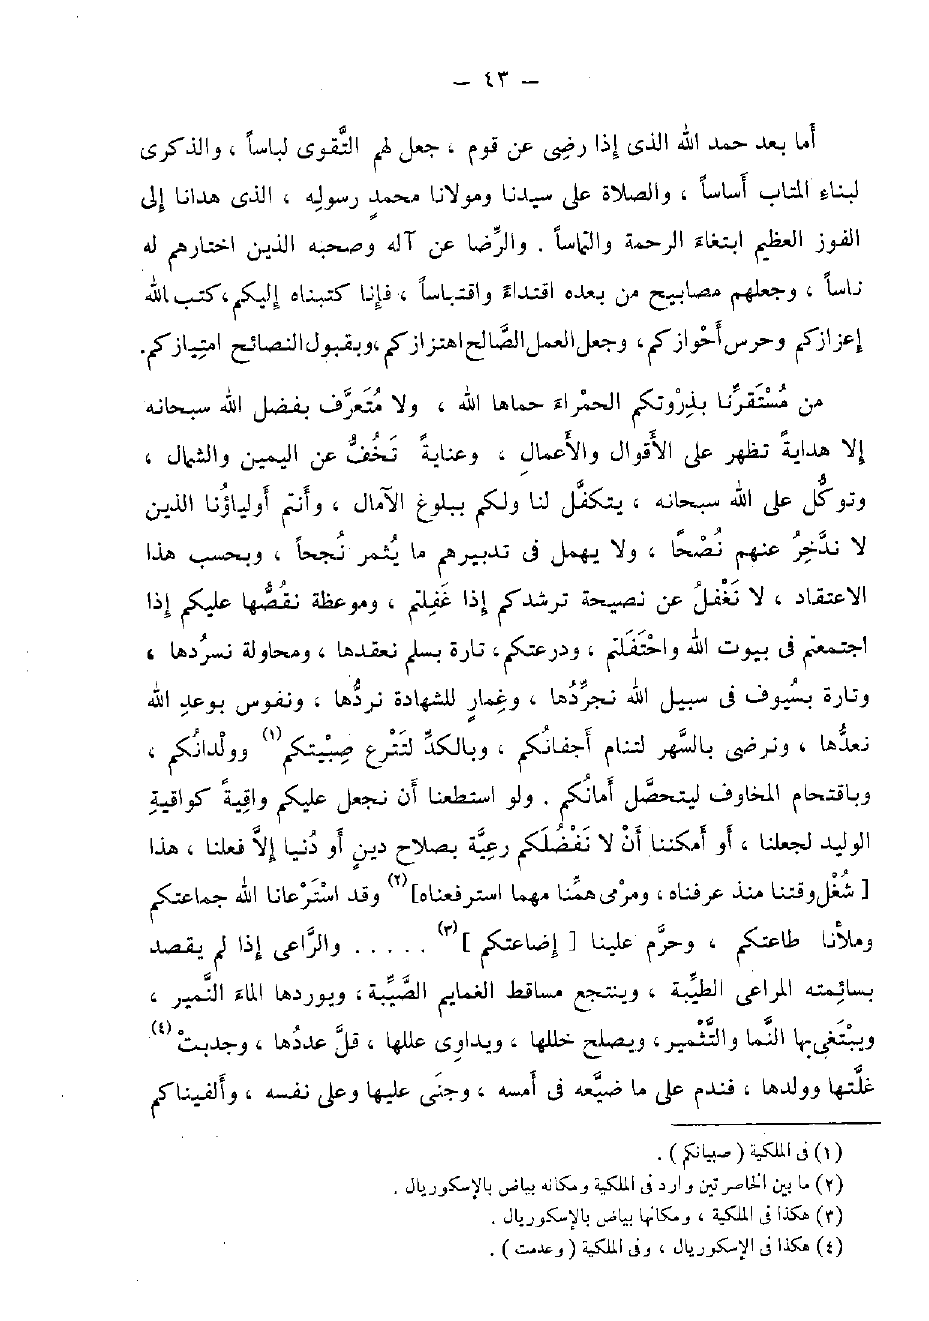 — ٤٣ —
أما بعد حمد الله الذى إذا رضِى عن قوم ، جعل لهم التَّقوى لباساً ، والذكرى
لبناءِ المتاب أساساً ، والصلاة على سيدنا ومولانا محمدٍ رسولِه ، الذى هدانا إلى
الفوز العظيم ابتغاءَ الرحمة والتماساً . والرِّضا عن آله وصحبه الذين اختارهم له
ناساً ، وجعلهم مصابيح من بعده اقتداءً واقتباساً ، فإنا كتبناه إليكم،كتب الله
إعزازكم وحرس أحْوازكم، وجعل العمل الصَّالح اهتزازكم،وبقبول النصائح امتيازكم.
من مُسْتَقرِّنا بذِرْوتكم الحمْراءَ حماها الله ، ولا مُتَعرَّف بفضل الله سبحانه
إلا هدايةً تظهر على الأَقوال والأَعمالِ ، وعنايةً تَخُفُّ عن اليمين والشمال ،
وتوكُّل على الله سبحانه ، يتكفَّل لنا ولكم ببلوغ الآمال ، وأَنتم أَولياؤُنا الذين
لا ندَّخِرُ عنهم نُصْحًا ، ولا يهمل فى تدبيرهم ما يُثمر نُجحاً ، وبحسب هذا
الاعتقاد ، لا نَغْفلُ عن نصيحة ترشدكم إذا غَفِلتم ، وموعظة نقُصُّها عليكم إذا
اجتمعتم فى بيوت الله واحْتَفَلتم ، ودرعتكم، تارة بسلم نعقدها ، ومحاولة نسرُدها ،
وتارة بسُيوف فى سبيل الله نجرِّدُها ، وغِمارٍ للشهادة نردُّها ، ونفوس بوعدِ الله
نعدُّها ، ونرضى بالسَّهر لتنام أَجفانُكم ، وبالكدِّ لتَتْرع صِبْيتكم (١) وولْدانُكم ،
وباقتحام المخاوف ليتحصَّل أَمانُكم . ولو استطعنا أَن نجعل عليكم واقيةً كواقيةِ
الوليد لجعلنا ، أَو أَمكننا أَنْ لا تَفْضُلَكم رعيَّة بصلاح دينٍ أَو دُنيا إلاَّ فعلنا ، هذا
[ شُغْل وقتنا منذ عرفناه ، ومرْمى همِّنا مهما استرفعناه] (٢) وقد اسْتَرْعانا الله جماعتكم
وملأَنا طاعتكم ، وحرَّم علينا [ إضاعتكم ] (٣) . . . . . والرَّاعى إذا لم يقصد
بسائمته المراعى الطيِّبة ، وينتجع مساقط الغمايم الصَّيِّبة، ويوردها الماءَ النَّمير ،
ويبْتغى بها النَّما والتَّثْمير، ويصلح خللها ، ويداوى عللها ، قلَّ عددُها ، وجدبتْ (٤)
غلَّتها وولدها ، فندم على ما ضيَّعه فى أَمسه ، وجنَى عليها وعلى نفسه ، وأَلفيناكم
(١) فى الملكية ( صبيانكم ) .
(٢) ما بين الخاصرتين وارد فى الملكية ومكانه بياض بالإسكوريال .
(٣) هكذا فى الملكية ، ومكانها بياض بالإسكوريال .
(٤) هكذا فى الإسكوريال ، وفى الملكية ( وعدمت ) .